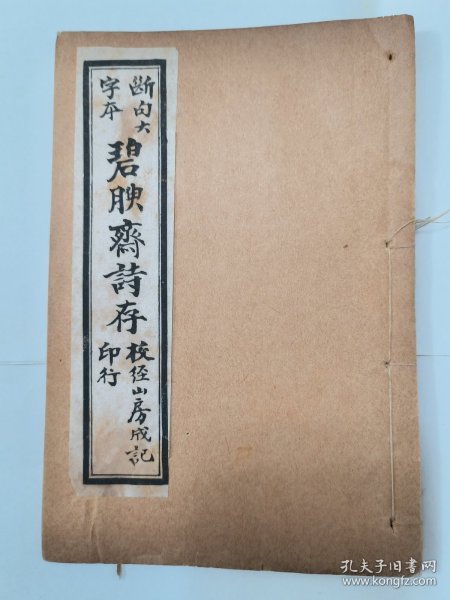 断句大
字本
碧腴齋詩存
校经山房成記
印行
孔夫子旧书网
www.kongfz.com